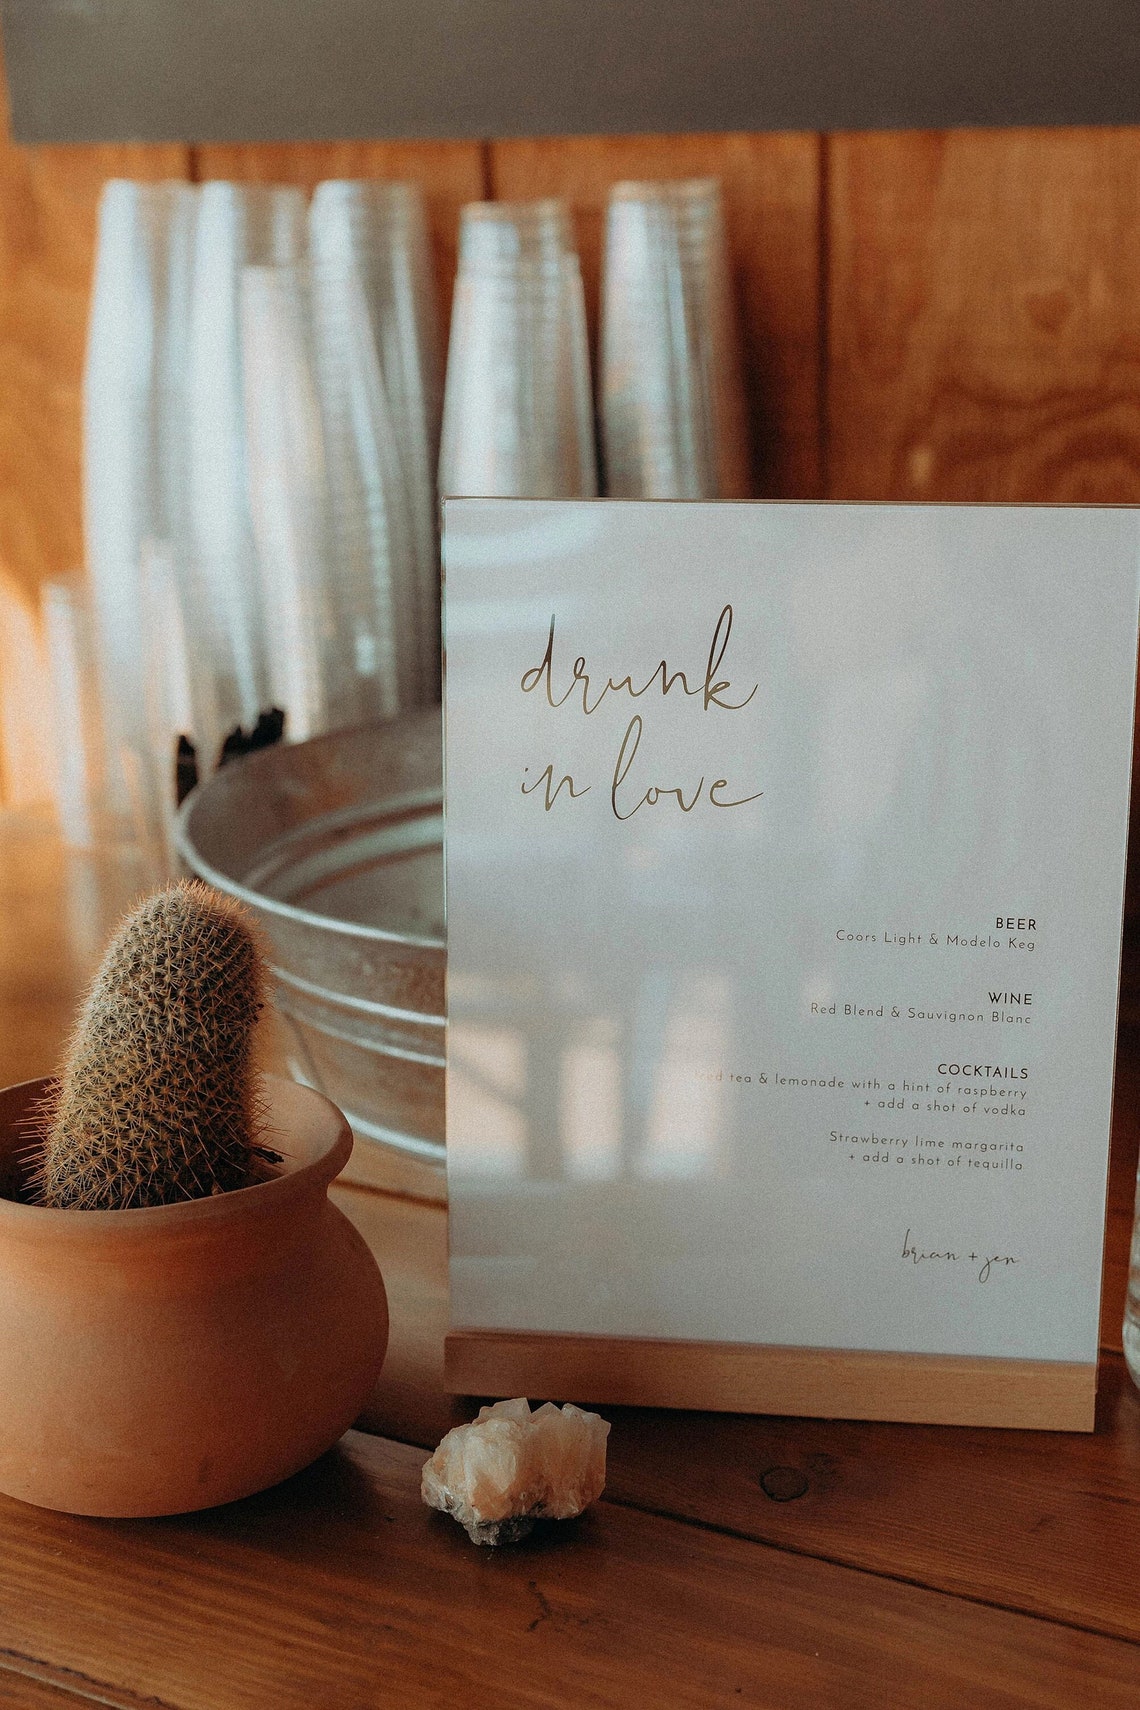 drunk
in love
BEER
Coors Light & Modelo Keg
WINE
Red Blend & Sauvignon Blanc
COCKTAILS
tea & lemonade with a hint of raspberry
+ add a shot of vodka
Strawberry lime margarita
+ add a shot of tequilla
brian + jen